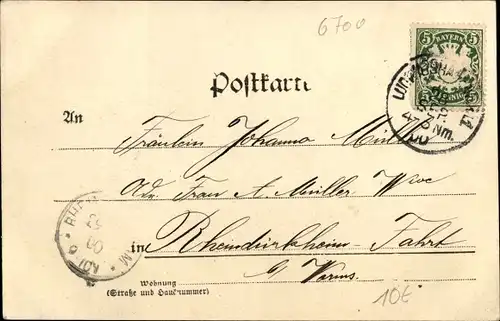 6700
5 BAYERN 5
PFENNIG
LUDWIGSHAFEN
Nm.
00
Postkarte
An
Fräulein Johanna Müller
Adr. Frau A. Müller Wwe
in Rheindürkheim-Fahrt
b/ Worms.
Wohnung
(Straße und Hausnummer)
10€